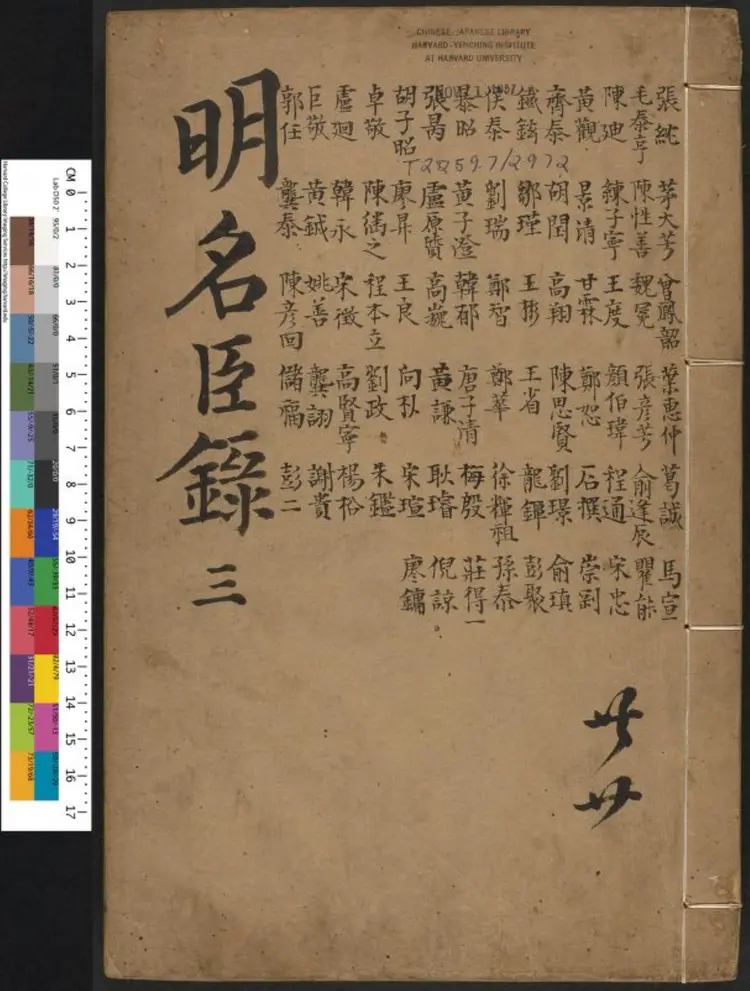 CHINESE-JAPANESE LIBRARY
HARVARD-YENCHING INSTITUTE
AT HARVARD UNIVERSITY
T2259.7/2972
張紞 茅大芳 曾鳳韶 葉惠仲 葛誠 馬宣
毛泰亨 陳性善 魏冕 張彦芳 俞逢辰 瞿能
陳迪 鍊子寧 王度 顏伯瑋 程通 宋忠
黃觀 景清 甘霖 鄭恕 石撰 崇剛
齊泰 胡閏 高翔 陳思賢 劉璟 俞瑱
鐵鉉 鄒瑾 王彬 王省 龍鐔 彭聚
侯泰 劉瑞 鄭智 鄭華 徐輝祖 孫泰
暴昭 黃子澄 韓郁 唐子清 梅殷 莊得一
張昺 盧原質 高巍 黃謙 耿璿 倪諒
胡子昭 廖昇 王良 向朴 宋瑄 廖鏞
卓敬 陳繼之 程本立 劉政 朱鑑
盧迥 韓永 宋徵 高賢寧 楊松
巨敬 黃鉞 姚善 龔詡 謝貴
郭任 龔泰 陳彥回 儲福 彭二
明名臣錄 三
CM 0 1 2 3 4 5 6 7 8 9 10 11 12 13 14 15 16 17